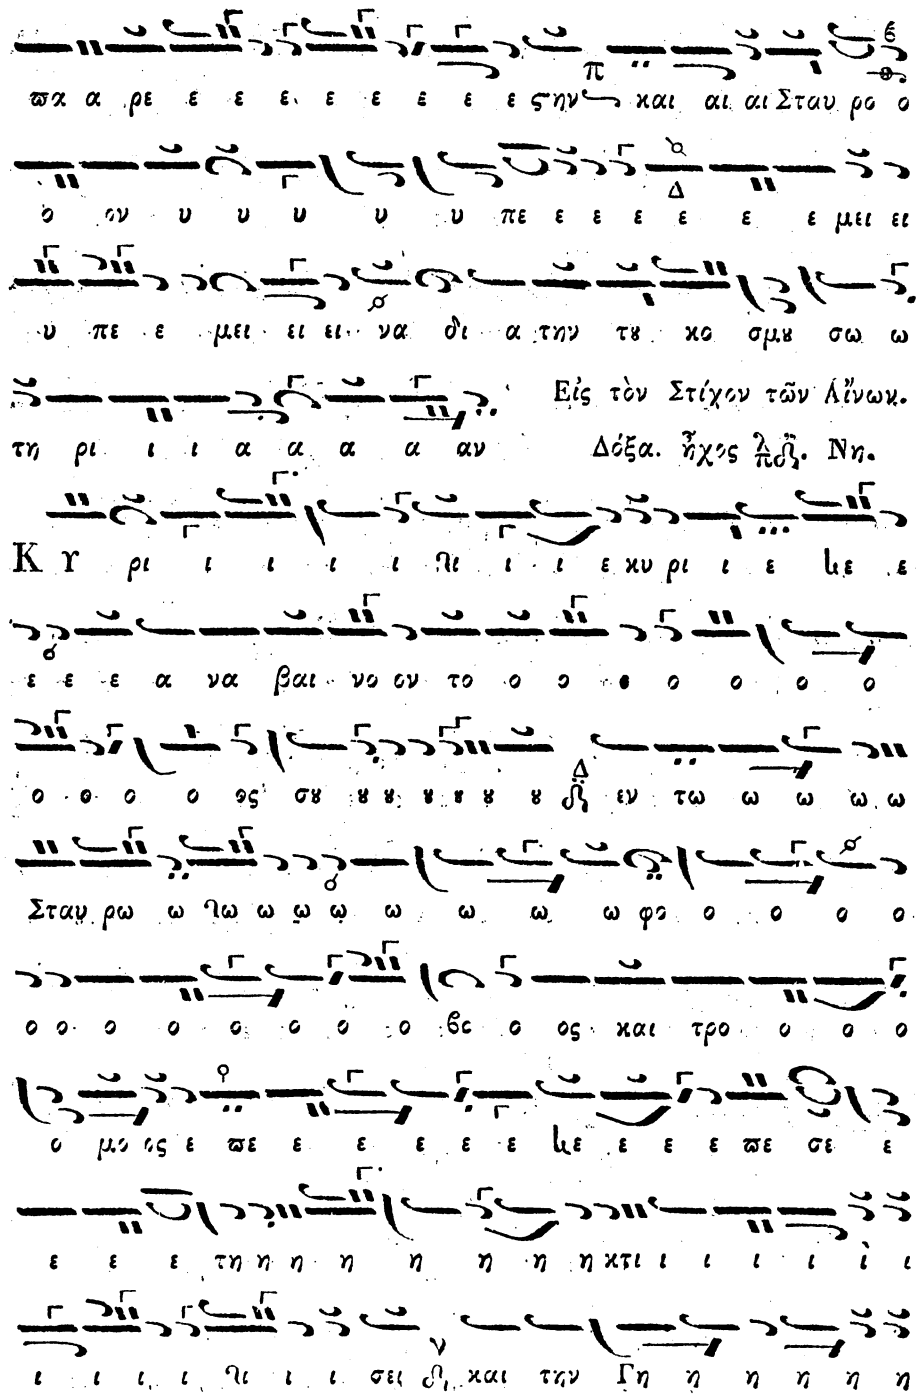 ϖα α ρε ε ε ε ε ε ε ε ε ε ςην και αι αι Σταυ ρο ο
ο ον υ υ υ υ υ πε ε ε ε ε ε ε μει ει
υ πε ε μει ει ει να δι α την τȣ κο σμȣ σω ω
Εἰς τὸν Στίχον τῶν Αἴνων.
τη ρι ι ι α α α α αν Δόξα. ἦχος λ π δ. Νη.
Κ Υ ρι ι ι ι ι ι ι ε κυ ρι ι ε ε
ε ε ε α να βαι νο ον το ο ο ο ο ο ο ο
ο ο ο ο ος σȣ ȣ ȣ ȣ ȣ ȣ ȣ εν τω ω ω ω ω
Σταυ ρω ω ω ω ω ω ω ω ω φο ο ο ο ο
ο ο ο ο ο ο ο ο βο ο ος και τρο ο ο ο
ο μο ος ε ϖε ε ε ε ε ε ε ε ε ϖε σε ε
ε ε ε τη η η η η η η η κτι ι ι ι ι ι ι
ι ι ι ι ι ι σει και την Γη η η η η η